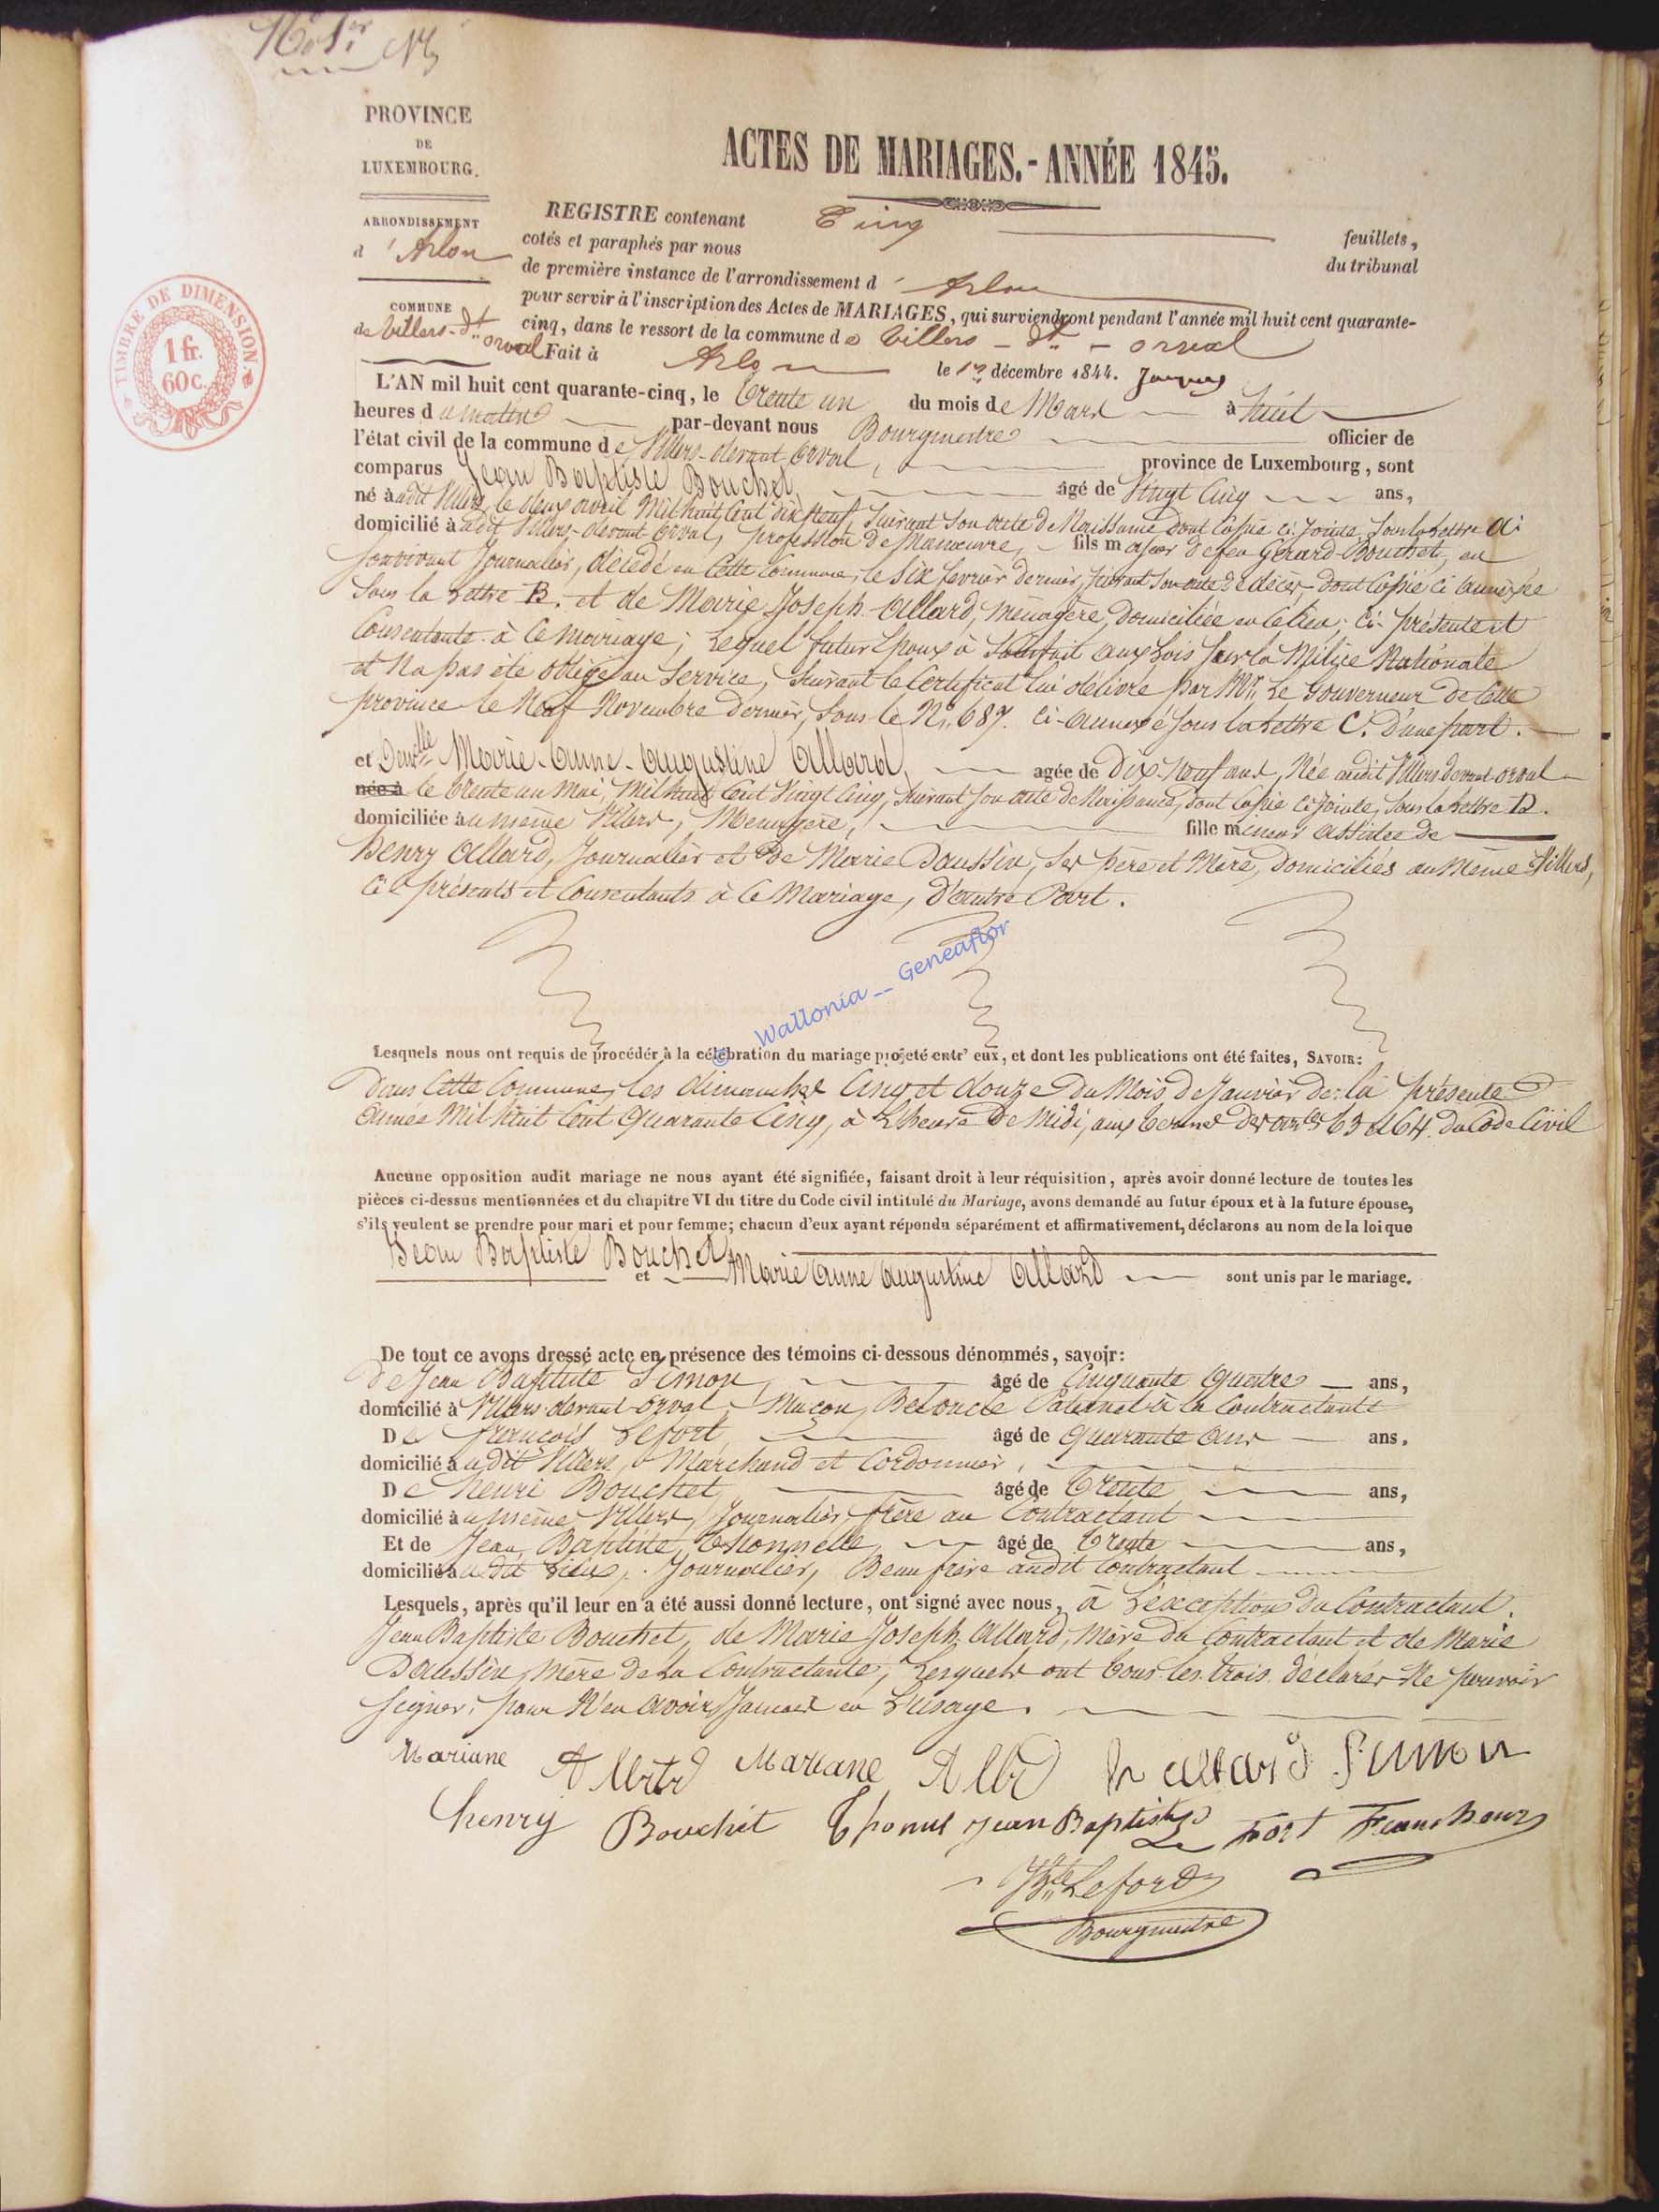 N° 1er
PROVINCE
DE
LUXEMBOURG.
ARRONDISSEMENT
d'Arlon
COMMUNE
de Villers-dt
orval
TIMBRE DE DIMENSION.
1 fr.
60 c.
ACTES DE MARIAGES.-ANNÉE 1845.
REGISTRE contenant Cinq feuillets,
cotés et paraphés par nous du tribunal
de première instance de l'arrondissement d'Arlon
pour servir à l'inscription des Actes de MARIAGES, qui surviendront pendant l'année mil huit cent quarante-
cinq, dans le ressort de la commune de Villers-dt-orval
Fait à Arlon le décembre 1844.
L'AN mil huit cent quarante-cinq, le trente un du mois de Mars à huit
heures du matin par-devant nous Bourgmestre officier de
l'état civil de la commune de Villers-devant-Orval, province de Luxembourg, sont
comparus Jean Baptiste Bouchet, âgé de Vingt Cinq ans,
né audit Villers, le deux avril Mil huit Cent dix Neuf, Suivant Son acte de Naissance dont Copie ci-jointe Sous la Lettre A.
domicilié audit Villers-devant-Orval, profession de Manœuvre, fils majeur de feu Gérard Bouchet, en
Son vivant Journalier, décédé en Cette Commune, le Six fevrier dernier, Suivant Son acte de décès dont Copie ci annexée
Sous la Lettre B. et de Marie Joseph Allard, Ménagère, domiciliée en Ce lieu, Ci-présente et
Consentante à Ce Mariage; Lequel futur Epoux à Satisfait aux Lois Sur la Milice Nationale
et Na pas été obligé au Service, Suivant le Certificat lui délivré par Mr. Le Gouverneur de Cette
province le Neuf Novembre dernier, Sous le N° 687. Ci-annexé Sous la Lettre C. D'une part.
et Demlle Marie-Anne-Augustine Allard, agée de Dix-Neuf ans, Née audit Villers devant orval
née à le trente un Mai, Mil huit Cent Vingt Cinq, Suivant Son acte de Naissance, dont Copie Ci jointe, Sous la Lettre D.
domiciliée au même Villers, Menagere, fille mineur assistée de
Henry Allard, Journalier et de Marie Daussin, Ses père et Mère, Domiciliés au Même Villers,
Ci présents et Consentants à Ce Mariage, D'autre Part.
© Wallonia __ Geneaflor
Lesquels nous ont requis de procéder à la célébration du mariage projeté entr' eux, et dont les publications ont été faites, SAVOIR:
Dans Cette Commune, les dimanches Cinq et douze Du Mois de Janvier de la présente
année Mil huit Cent Quarante Cinq, à L'heure De Midi, aux termes des arles 63 et 64 du Code Civil
Aucune opposition audit mariage ne nous ayant été signifiée, faisant droit à leur réquisition, après avoir donné lecture de toutes les
pièces ci-dessus mentionnées et du chapitre VI du titre du Code civil intitulé du Mariage, avons demandé au futur époux et à la future épouse,
s'ils veulent se prendre pour mari et pour femme; chacun d'eux ayant répondu séparément et affirmativement, déclarons au nom de la loi que
Jean Baptiste Bouchet
et Marie Anne Augustine Allard sont unis par le mariage.
De tout ce avons dressé acte en présence des témoins ci-dessous dénommés, savoir:
De Jean Baptiste Simon, âgé de Cinquante Quatre ans,
domicilié à Villers-devant-Orval, Maçon, Beloncle Paternel à la Contractante
De françois Lefort, âgé de Quarante ans ans.
domicilié audit Villers, Marchand et Cordonnier,
De henri Bouchet, âgé de Trente ans,
domicilié au même Villers, Journalier, frère au Contractant
Et de Jean Baptiste Thonnelle, âgé de Trente ans,
domicilié audit Lieu, Journalier, Beau frère audit Contractant
Lesquels, après qu'il leur en a été aussi donné lecture, ont signé avec nous, à L'exception du Contractant.
Jean Baptiste Bouchet, de Marie Joseph Allard, Mère du Contractant et de Marie
Daussin, Mère de La Contractante, Lesquels ont tous les trois déclarés Ne pouvoir
Signer, pour N'en avoir Jamais eu L'usage.
Mariane Mariane h allard Simon
henry Bouchet Jean Baptiste Le Fort
Leford
Bourgmestre